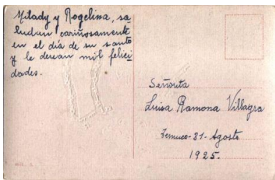 Milady y Rogelina, sa
ludan cariñosamente
en el día de su santo
y le desean mil felici
dades.
Señorita
Luisa Ramona Villagra
Temuco-31-Agosto
1925.